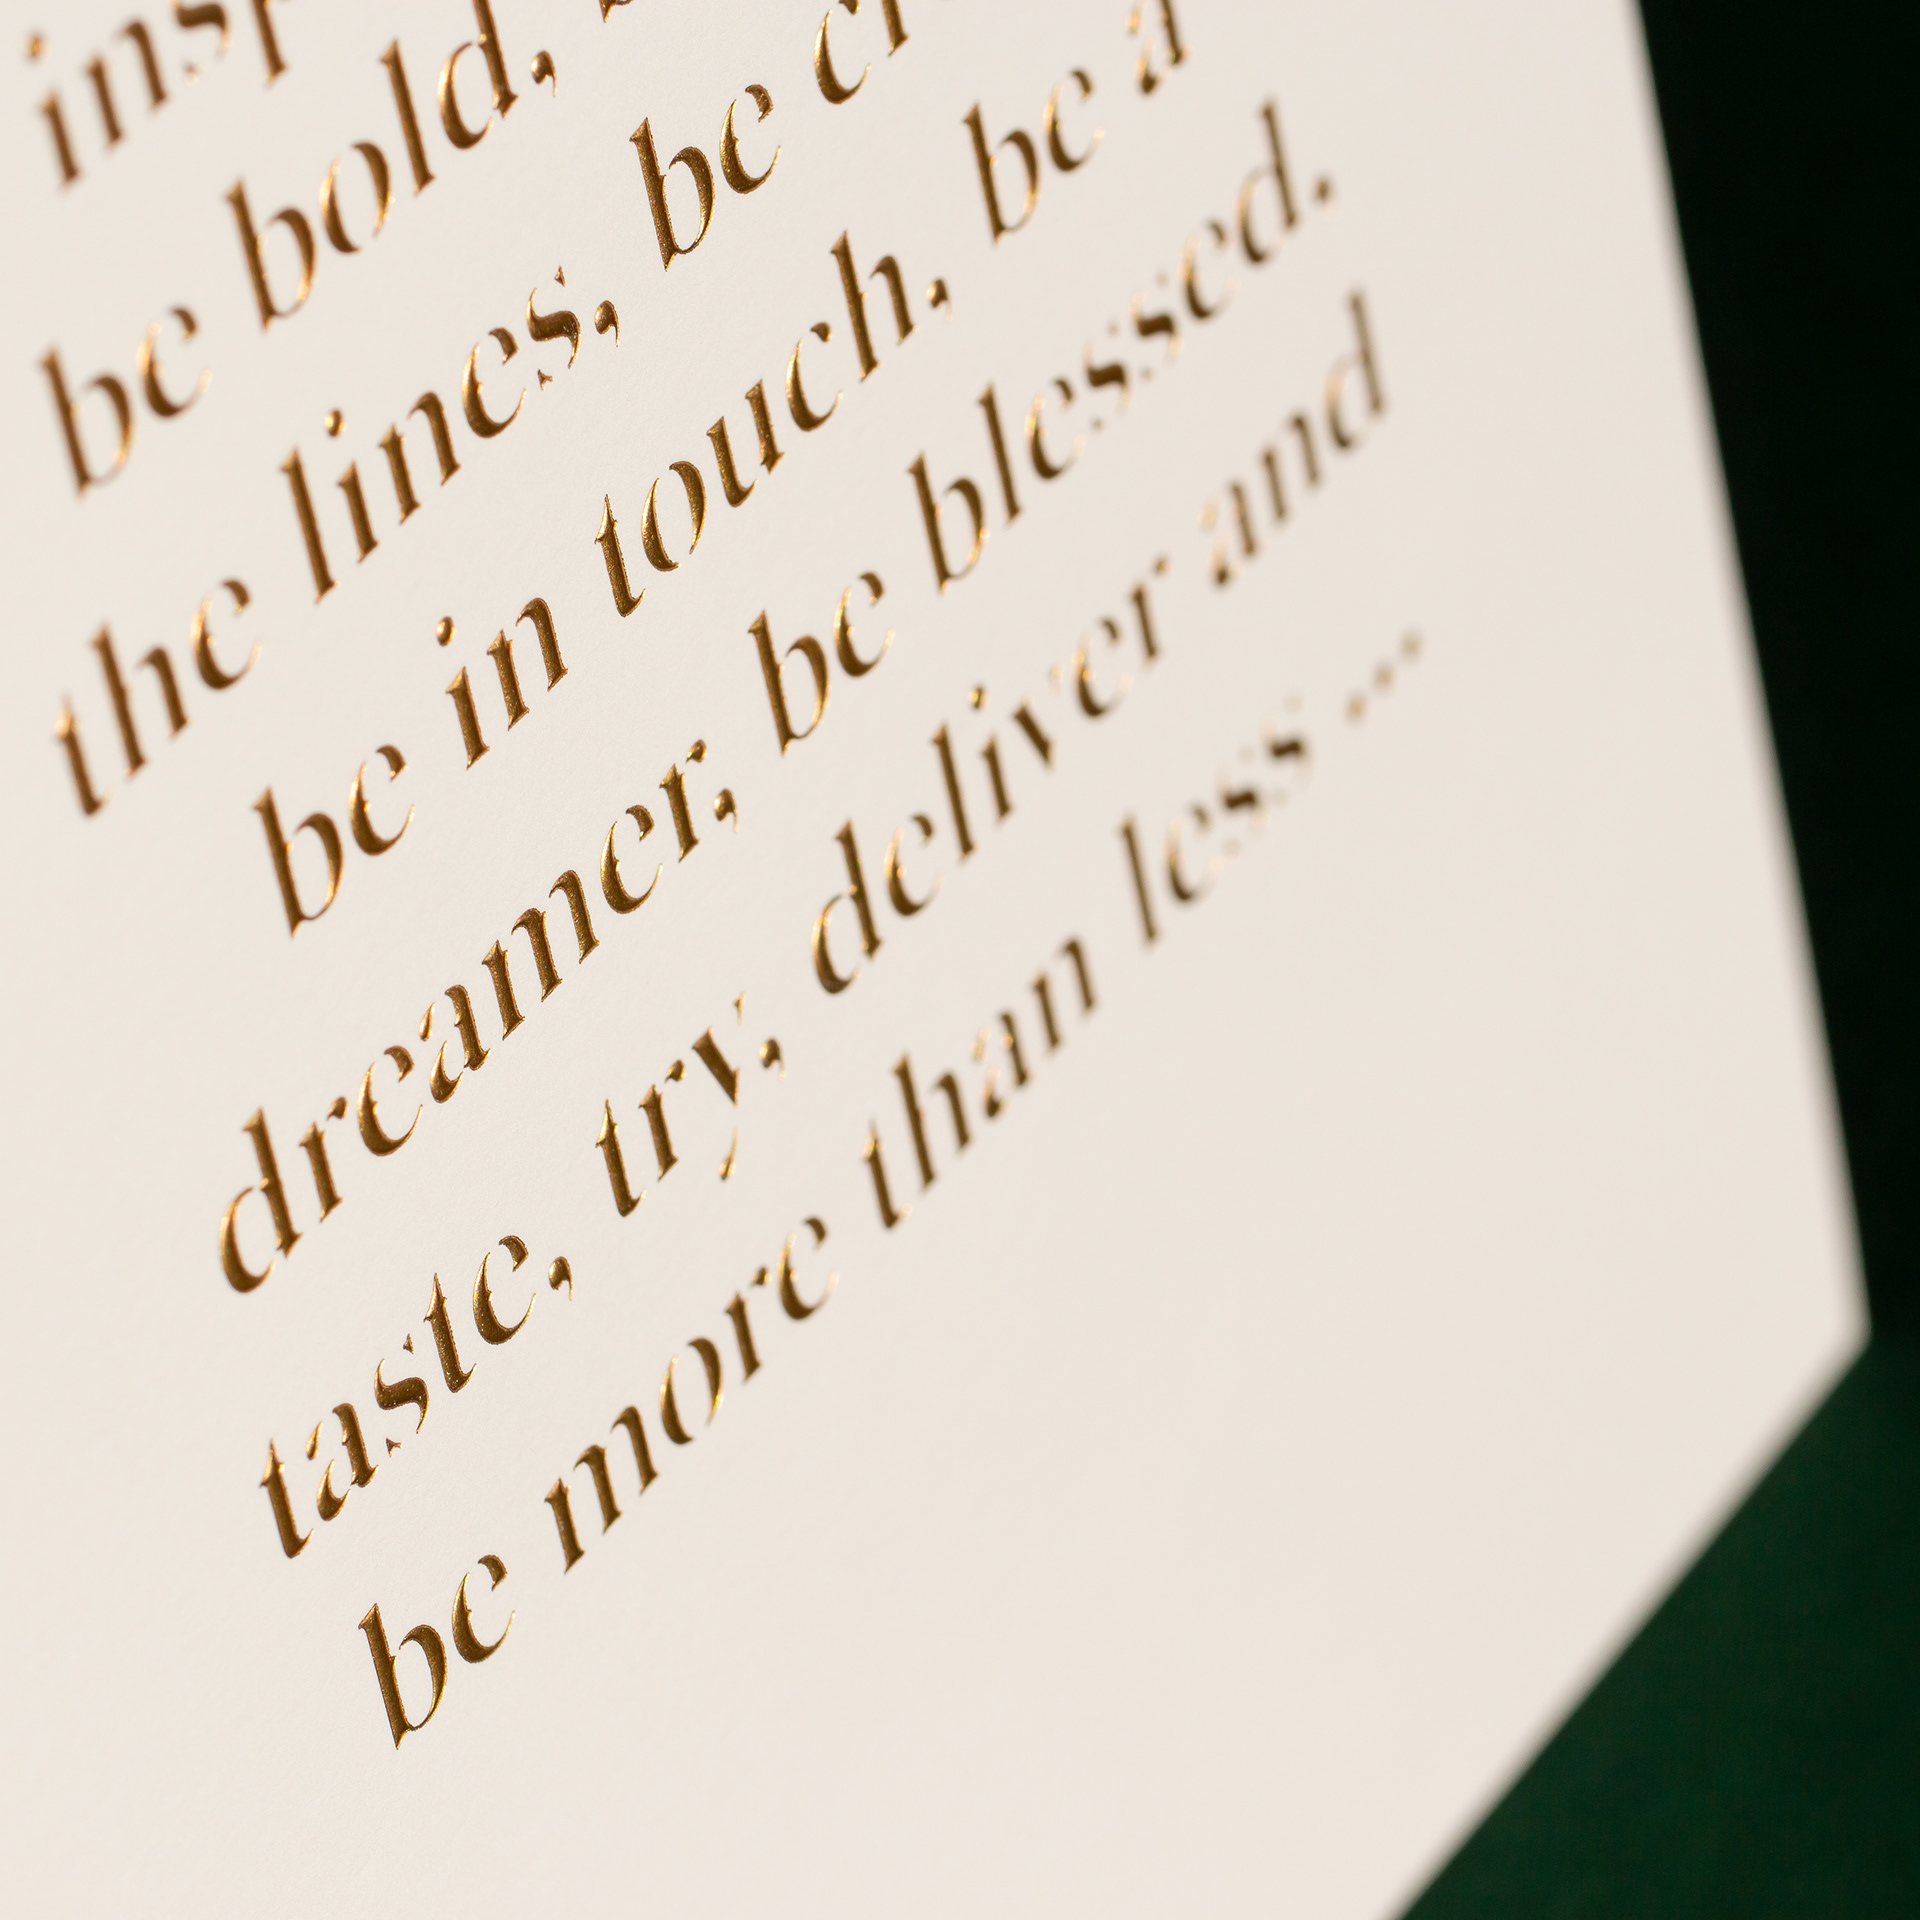 insp
be bold,
the lines, be
be in touch, be a
dreamer, be blessed.
taste, try, deliver and
be more than less ...